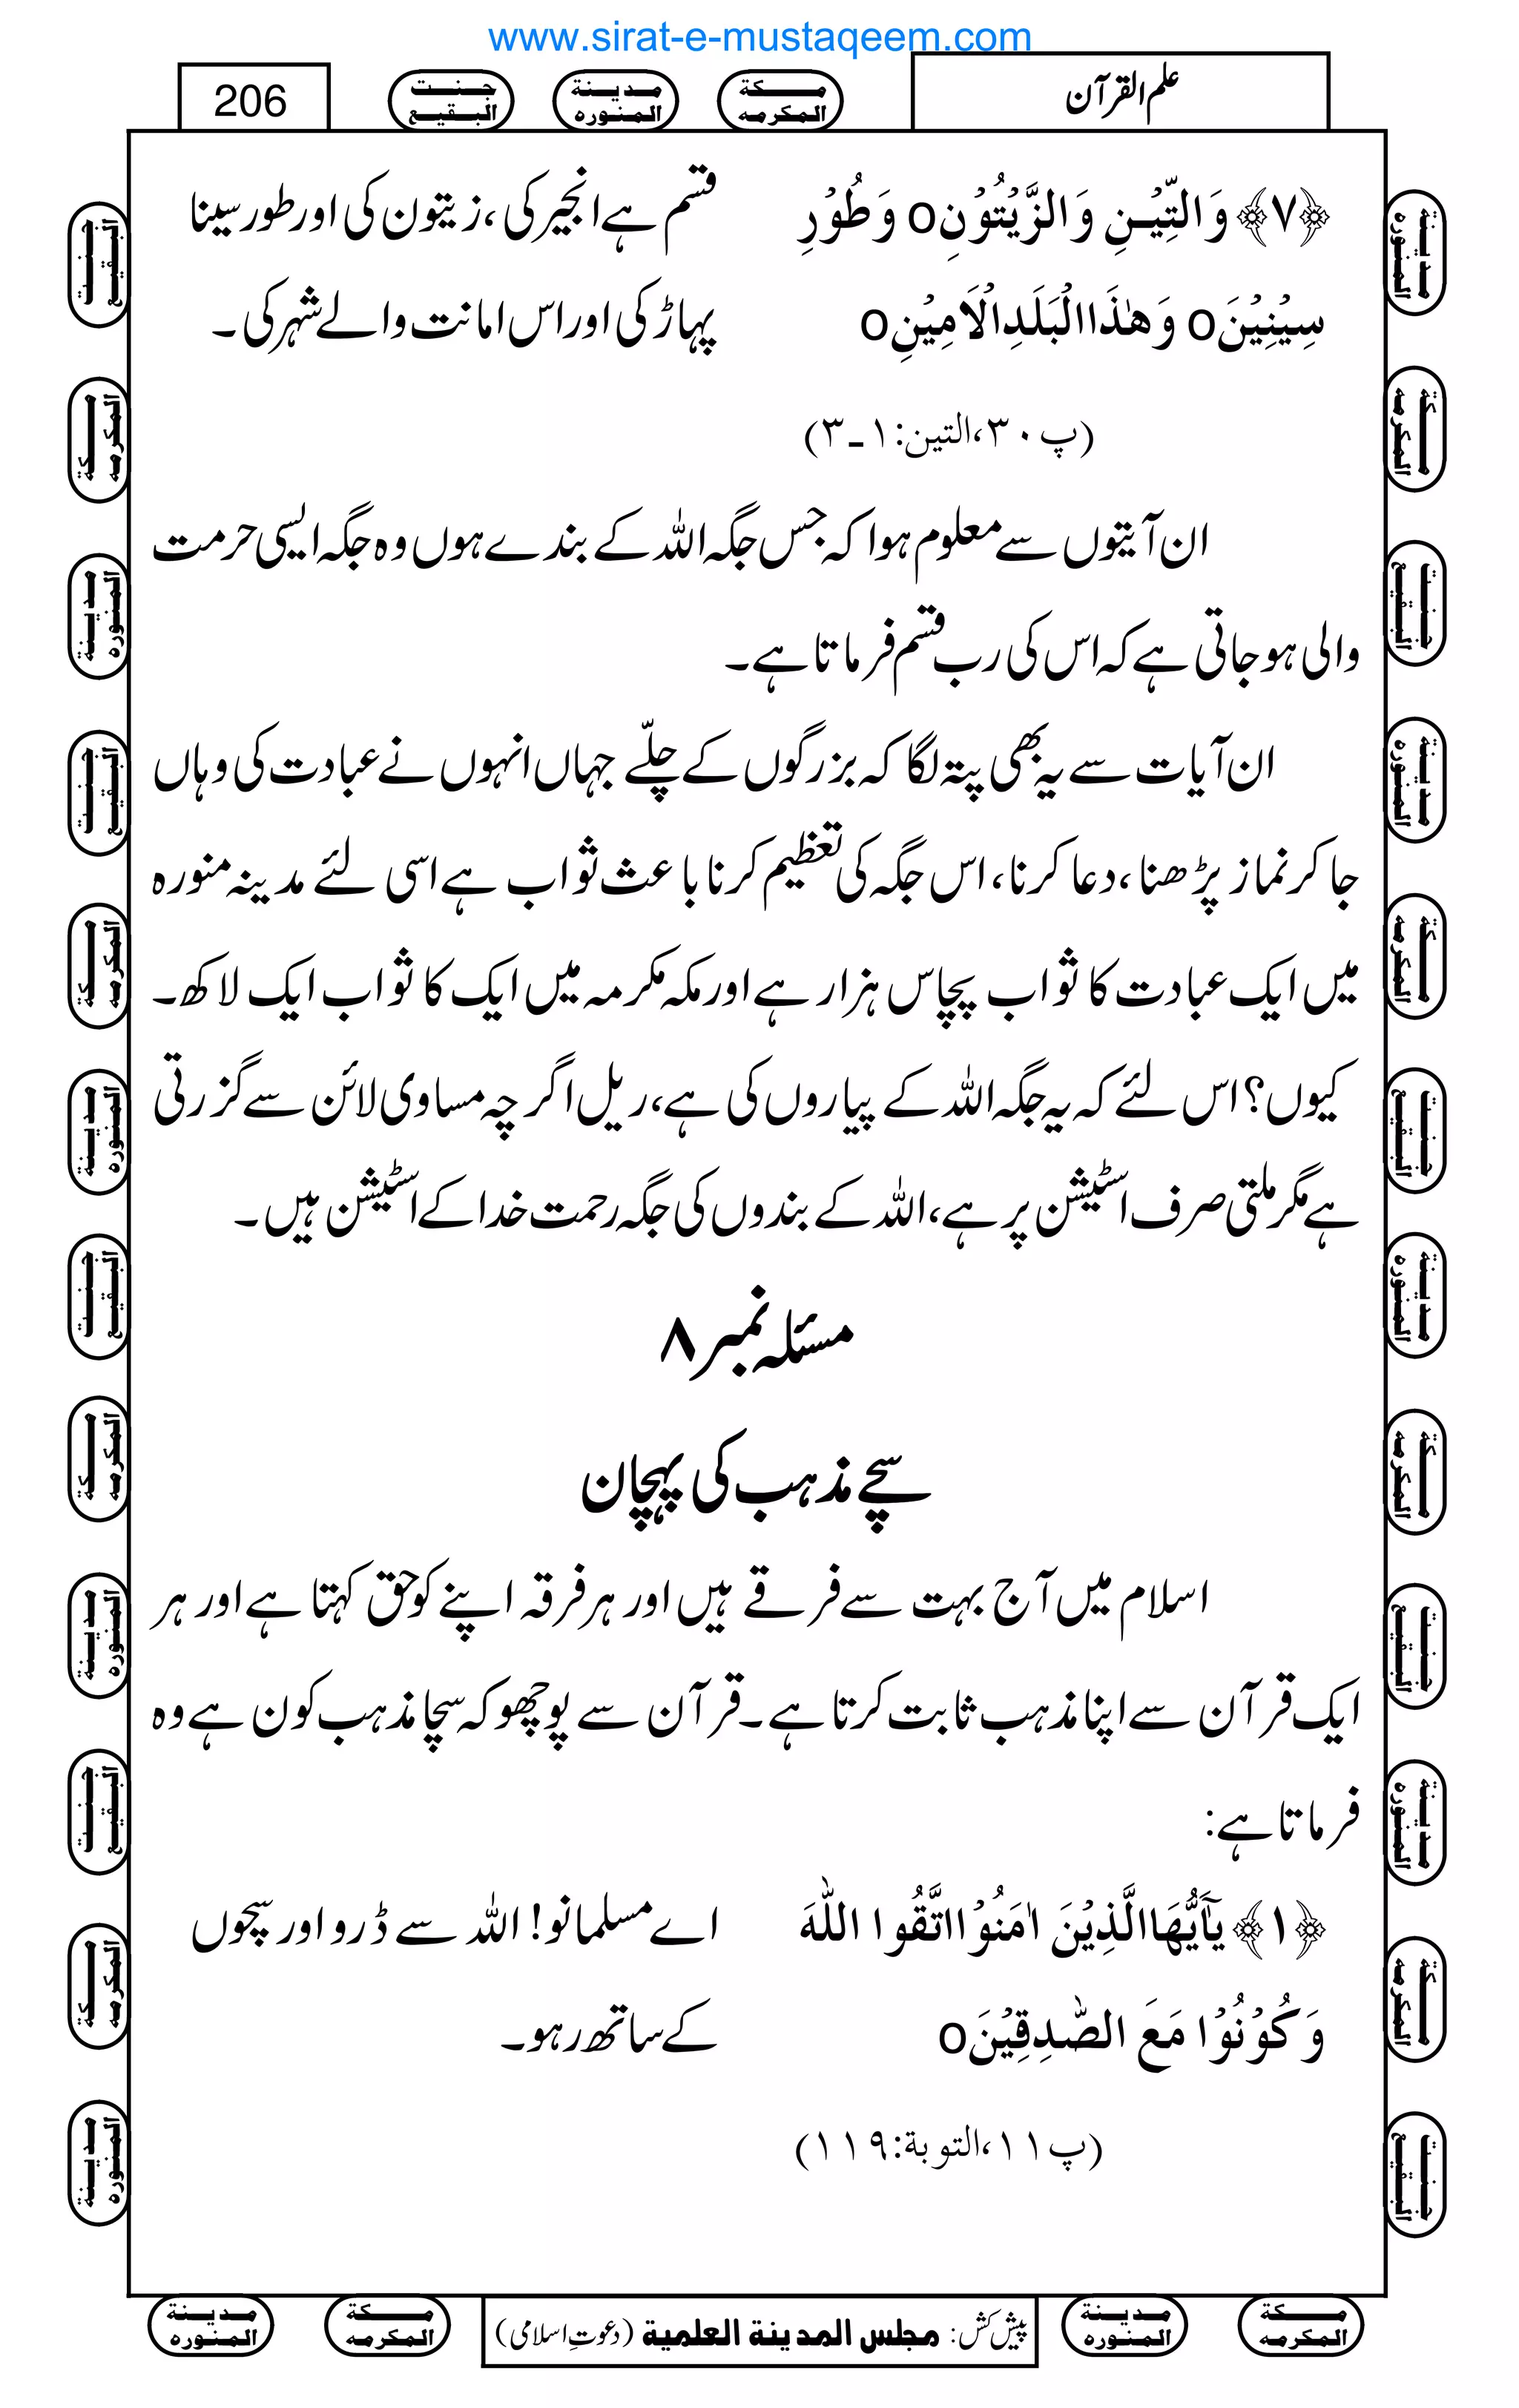 www.sirat-e-mustaqeem.com
علم القرآن
مكة المكرمه
مدينة المنوره
جنت البقيع
206
﴿۷﴾ وَالتِّيْنِ وَالزَّيْتُوْنِo وَطُوْرِ قسم ہے انجیر کی، زیتون کی اور طور سینا
سِيْنِيْنَo وَهٰذَا الْبَلَدِ الْاَمِيْنِo پہاڑ کی اور اس امانت والے شہر کی۔
(پ۳۰،التین:۱۔۳)
ان آیتوں سے معلوم ہوا کہ جس جگہ اللہ کے بندے ہوں وہ جگہ ایسی حرمت
والی ہو جاتی ہے کہ اس کی رب قسم فرماتا ہے۔
ان آیات سے یہ بھی پتہ لگا کہ بزرگوں کے چلّے جہاں انہوں نے عبادت کی وہاں
جا کر نماز پڑھنا، دعا کرنا، اس جگہ کی تعظیم کرنا باعث ثواب ہے اسی لئے مدینہ منورہ
میں ایک عبادت کا ثواب پچاس ہزار ہے اور مکہ مکرمہ میں ایک کا ثواب ایک لاکھ۔
کیوں؟ اس لئے کہ یہ جگہ اللہ کے پیاروں کی ہے، ریل اگر چہ مساوی لائن سے گزرتی
ہے مگر ملتی صرف اسٹیشن پر ہے، اللہ کے بندوں کی جگہ رحمت خدا کے اسٹیشن ہیں۔
مسئلہ نمبر ۸
سچے مذہب کی پہچان
اسلام میں آج بہت سے فرقے ہیں اور ہر فرقہ اپنے کو حق کہتا ہے اور ہر
ایک قرآن سے اپنا مذہب ثابت کرتا ہے۔ قرآن سے پوچھو کہ سچا مذہب کون ہے وہ
فرماتا ہے:
﴿۱﴾ يٰۤاَيُّهَا الَّذِيْنَ اٰمَنُوْا اتَّقُوا اللّٰهَ اے مسلمانو! اللہ سے ڈرو اور سچوں
وَكُوْنُوْا مَعَ الصّٰدِقِيْنَo کے ساتھ رہو۔
(پ۱۱،التوبة:۱۱۹)
مكة المكرمه
مدينة المنوره
پیش کش: مجلس المدینة العلمیة (دعوتِ اسلامی)
مكة المكرمه
مدينة المنوره